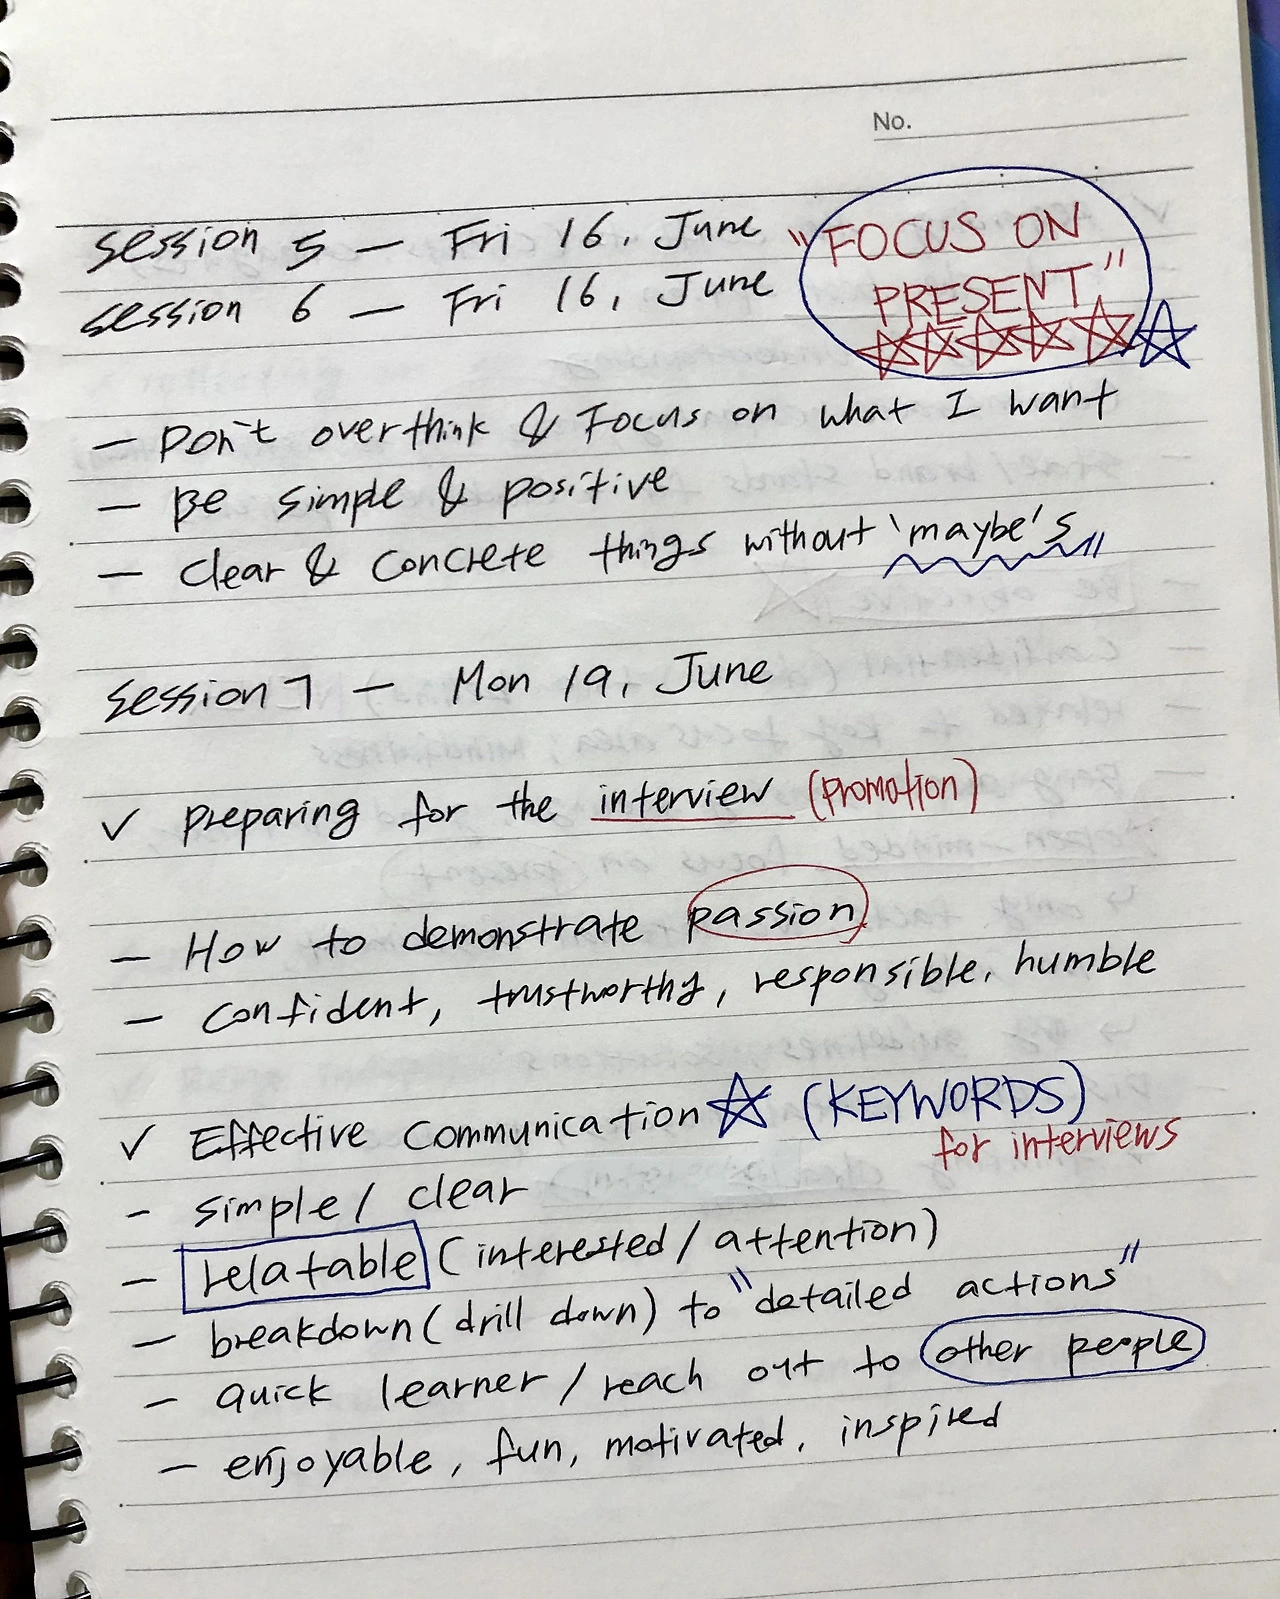 No.
session 5 — Fri 16, June "FOCUS ON
session 6 — Fri 16, June PRESENT"
— Don't overthink & Focus on what I want
— Be simple & positive
— clear & concrete things without 'maybe's"
session 7 — Mon 19, June
✓ preparing for the interview (promotion)
— How to demonstrate passion
— confident, trustworthy, responsible, humble
✓ Effective communication ☆ (KEYWORDS)
for interviews
- simple / clear
- relatable (interested / attention)
- breakdown (drill down) to "detailed actions"
- quick learner / reach out to other people
- enjoyable, fun, motivated, inspired